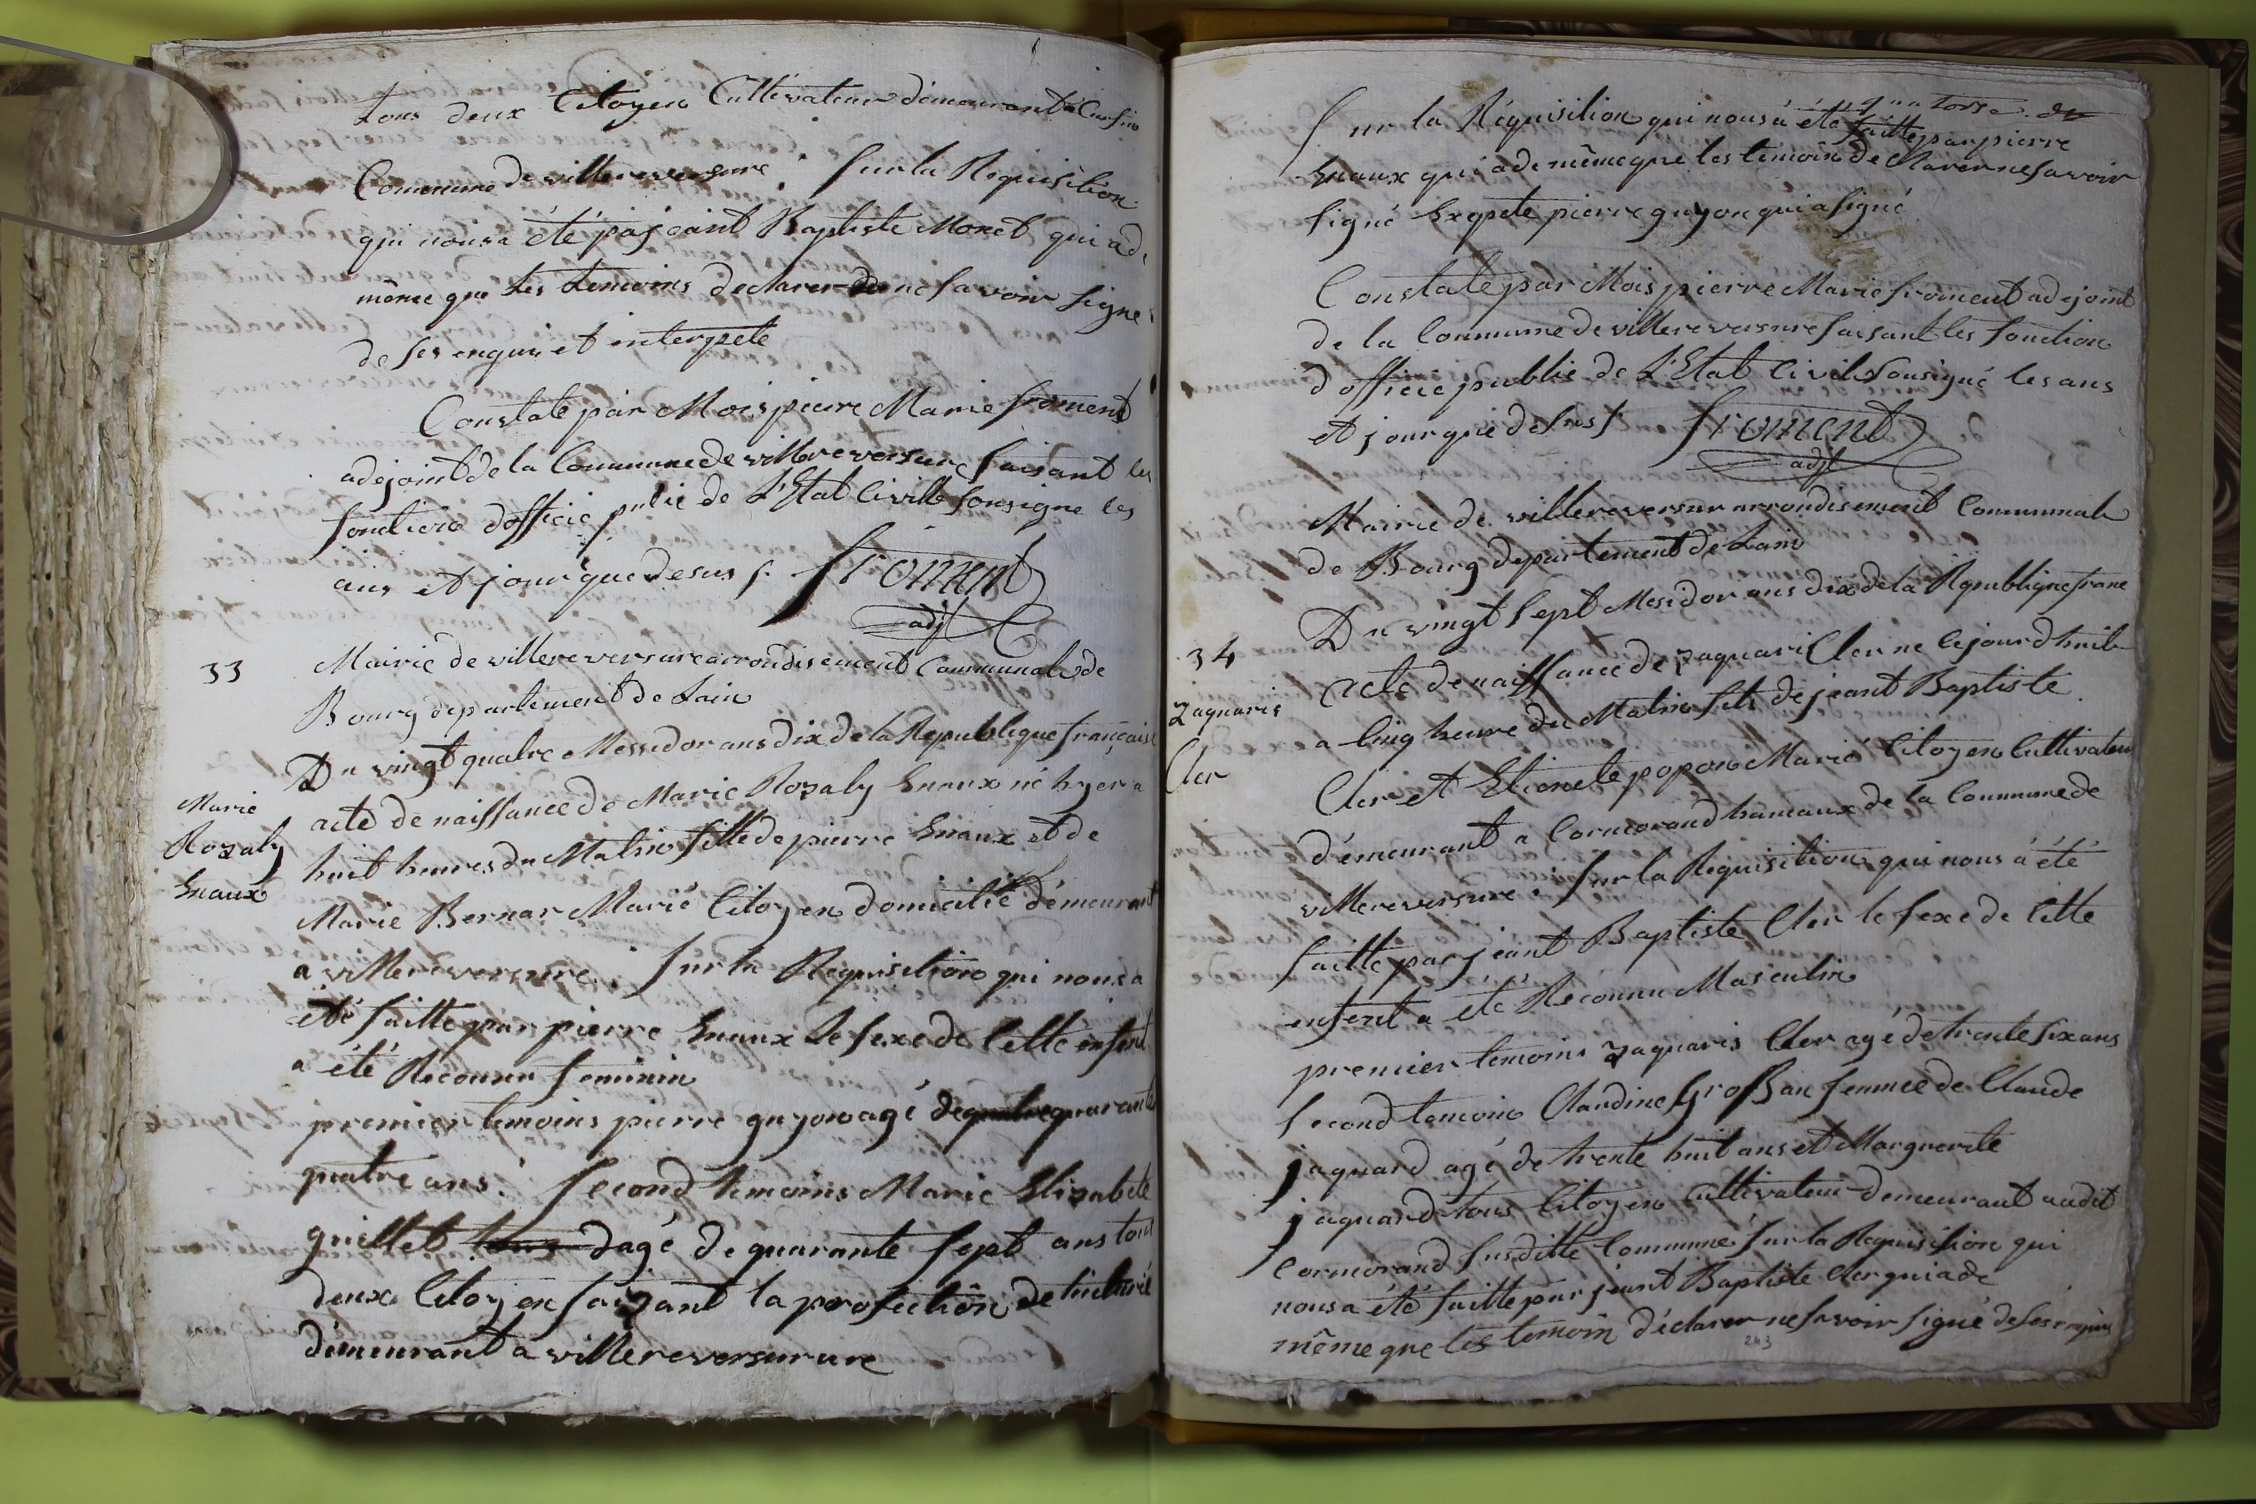 tous deux Citoyen Cultivateur démeurant a
Commune de villereversure. Sur la Requisition
qui nous a été par jeant Baptiste Monet qui a de
même que les temoins declarer de ne savoir signe
de ses enquis et interpete
Constate par Mois pierre Marie froment
adejoint de la Commune de villereversure faisant les
fonctions dofficié pulic de L'Etat Civille sousigne les
ans et jour que desus f. froment
adjt
33
Mairie de villereversure arrondisement Communal de
Bourg departement de Lain
Du vingt quatre Messidor ans dix de la Republique française
Marie
Rozaly
Enaux
acte de naissance de Marie Rozaly Enaux né hyer a
huit heures du Matin fille de pierre Enaux et de
Marie Bernar Marié Citoyen domicilié démeurant
a villereversure. Sur la Requisition qui nous a
été faitte par pierre Enaux Le sexe de Cette enfent
a été Reconnu feminin
premier temoins pierre guyon agé de quatre quarante
quatre ans. Second temoins Marie Elizabete
guillet tous dagé de quarante sept ans tous
deux Citoyen faizant la profection de
démeurant a villereversurure
quatorse. de
Sur la Réquisition qui nous a été faitte par pierre
Enaux qui a de même que les temoin de Clarer ne savoir
signé Exqpete pierre guyon qui a signé
Constate par Mois pierre Marie froment adejoint
de la Commune de villereversure faisant les fonction
d'officié public de L'Etat Civil Sousigné les ans
et jour que desus f froment
adjt
Mairie de villereversur arrondisement Communale
de Bourg departement de Lain
Du vingt sept Mesidor ans dix de la Republique franc
34
Zaquaris
Cler
acte de naissance de zaquaris Cler ne cejourdhuit
a Cinq heure du Matin fils de jeant Baptiste
Cler et Etienete popon Marié Citoyen Cultivateur
démeurant a Cormorand hamaux de la Commune de
villereversure. Sur la Requisition qui nous a été
faitte par jeant Baptiste Cler le sexe de Cette
enfent a été Reconnu Masculin
premier temoins zaquaris Cler agé de trente six ans
Second temoin Claudine femme de Claude
jaquard agé de trente huit ans et Marguerite
jaquard tous Citoyen Cultivateur demeurant audit
Cormorand susditte Commune Sur la Requisition qui
nous a été faitte par jeant Baptiste Cler qui a de
même que les temoin déclarer ne savoir signé de ses enquis
243